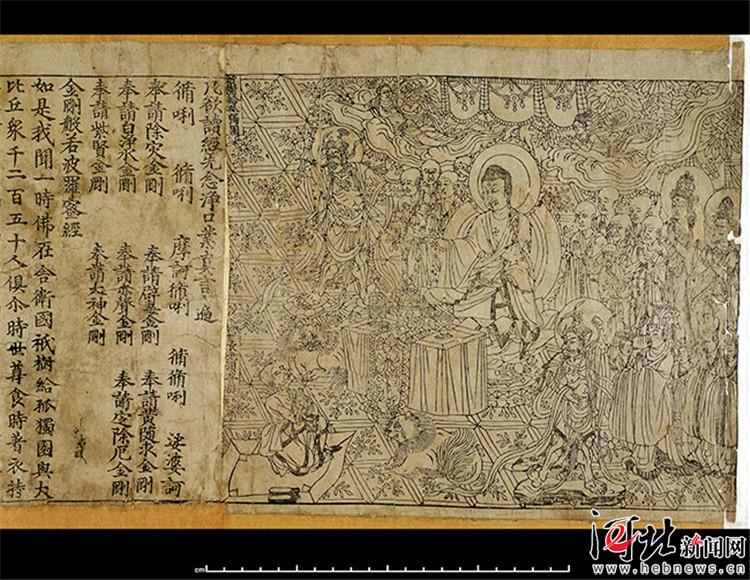 凡欲讀經先念淨口業真言遍
脩唎 脩唎 摩訶脩唎 脩脩唎 娑婆訶
奉請除灾金剛 奉請辟毒金剛 奉請黃隨求金剛
奉請白淨水金剛 奉請赤聲金剛 奉請定除厄金剛
奉請紫賢金剛 奉請大神金剛
金剛般若波羅蜜經
如是我聞一時佛在舍衛國祇樹給孤獨園與大
比丘衆千二百五十人俱尒時世尊食時著衣持
cm
河北新闻网
www.hebnews.cn